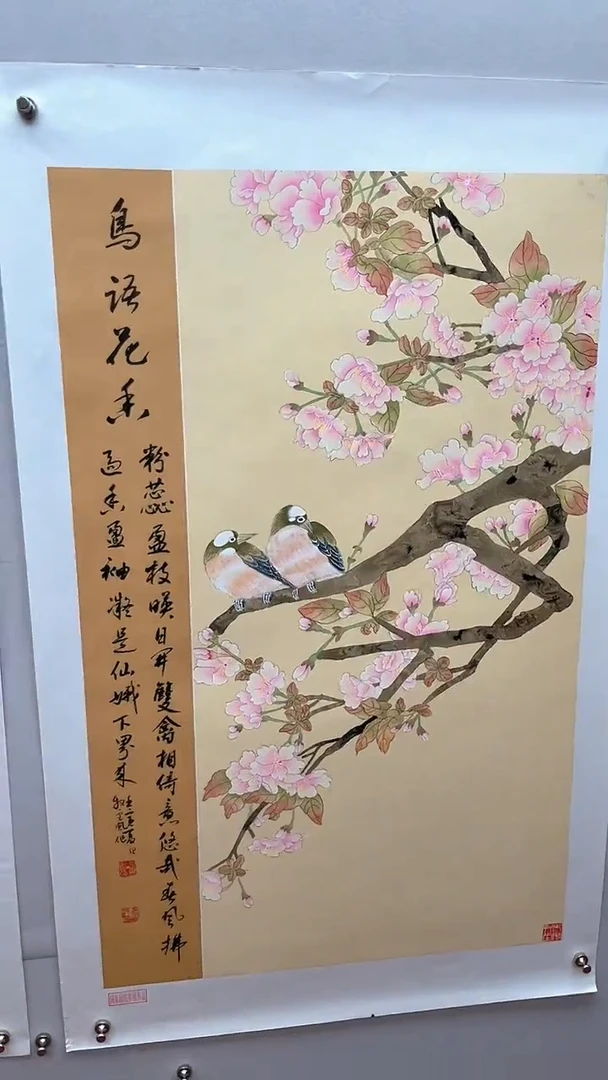 鳥語花香
粉蕊盈枝暎日開雙禽相倚意悠哉春風拂
過香盈袖凝是仙娥下界來